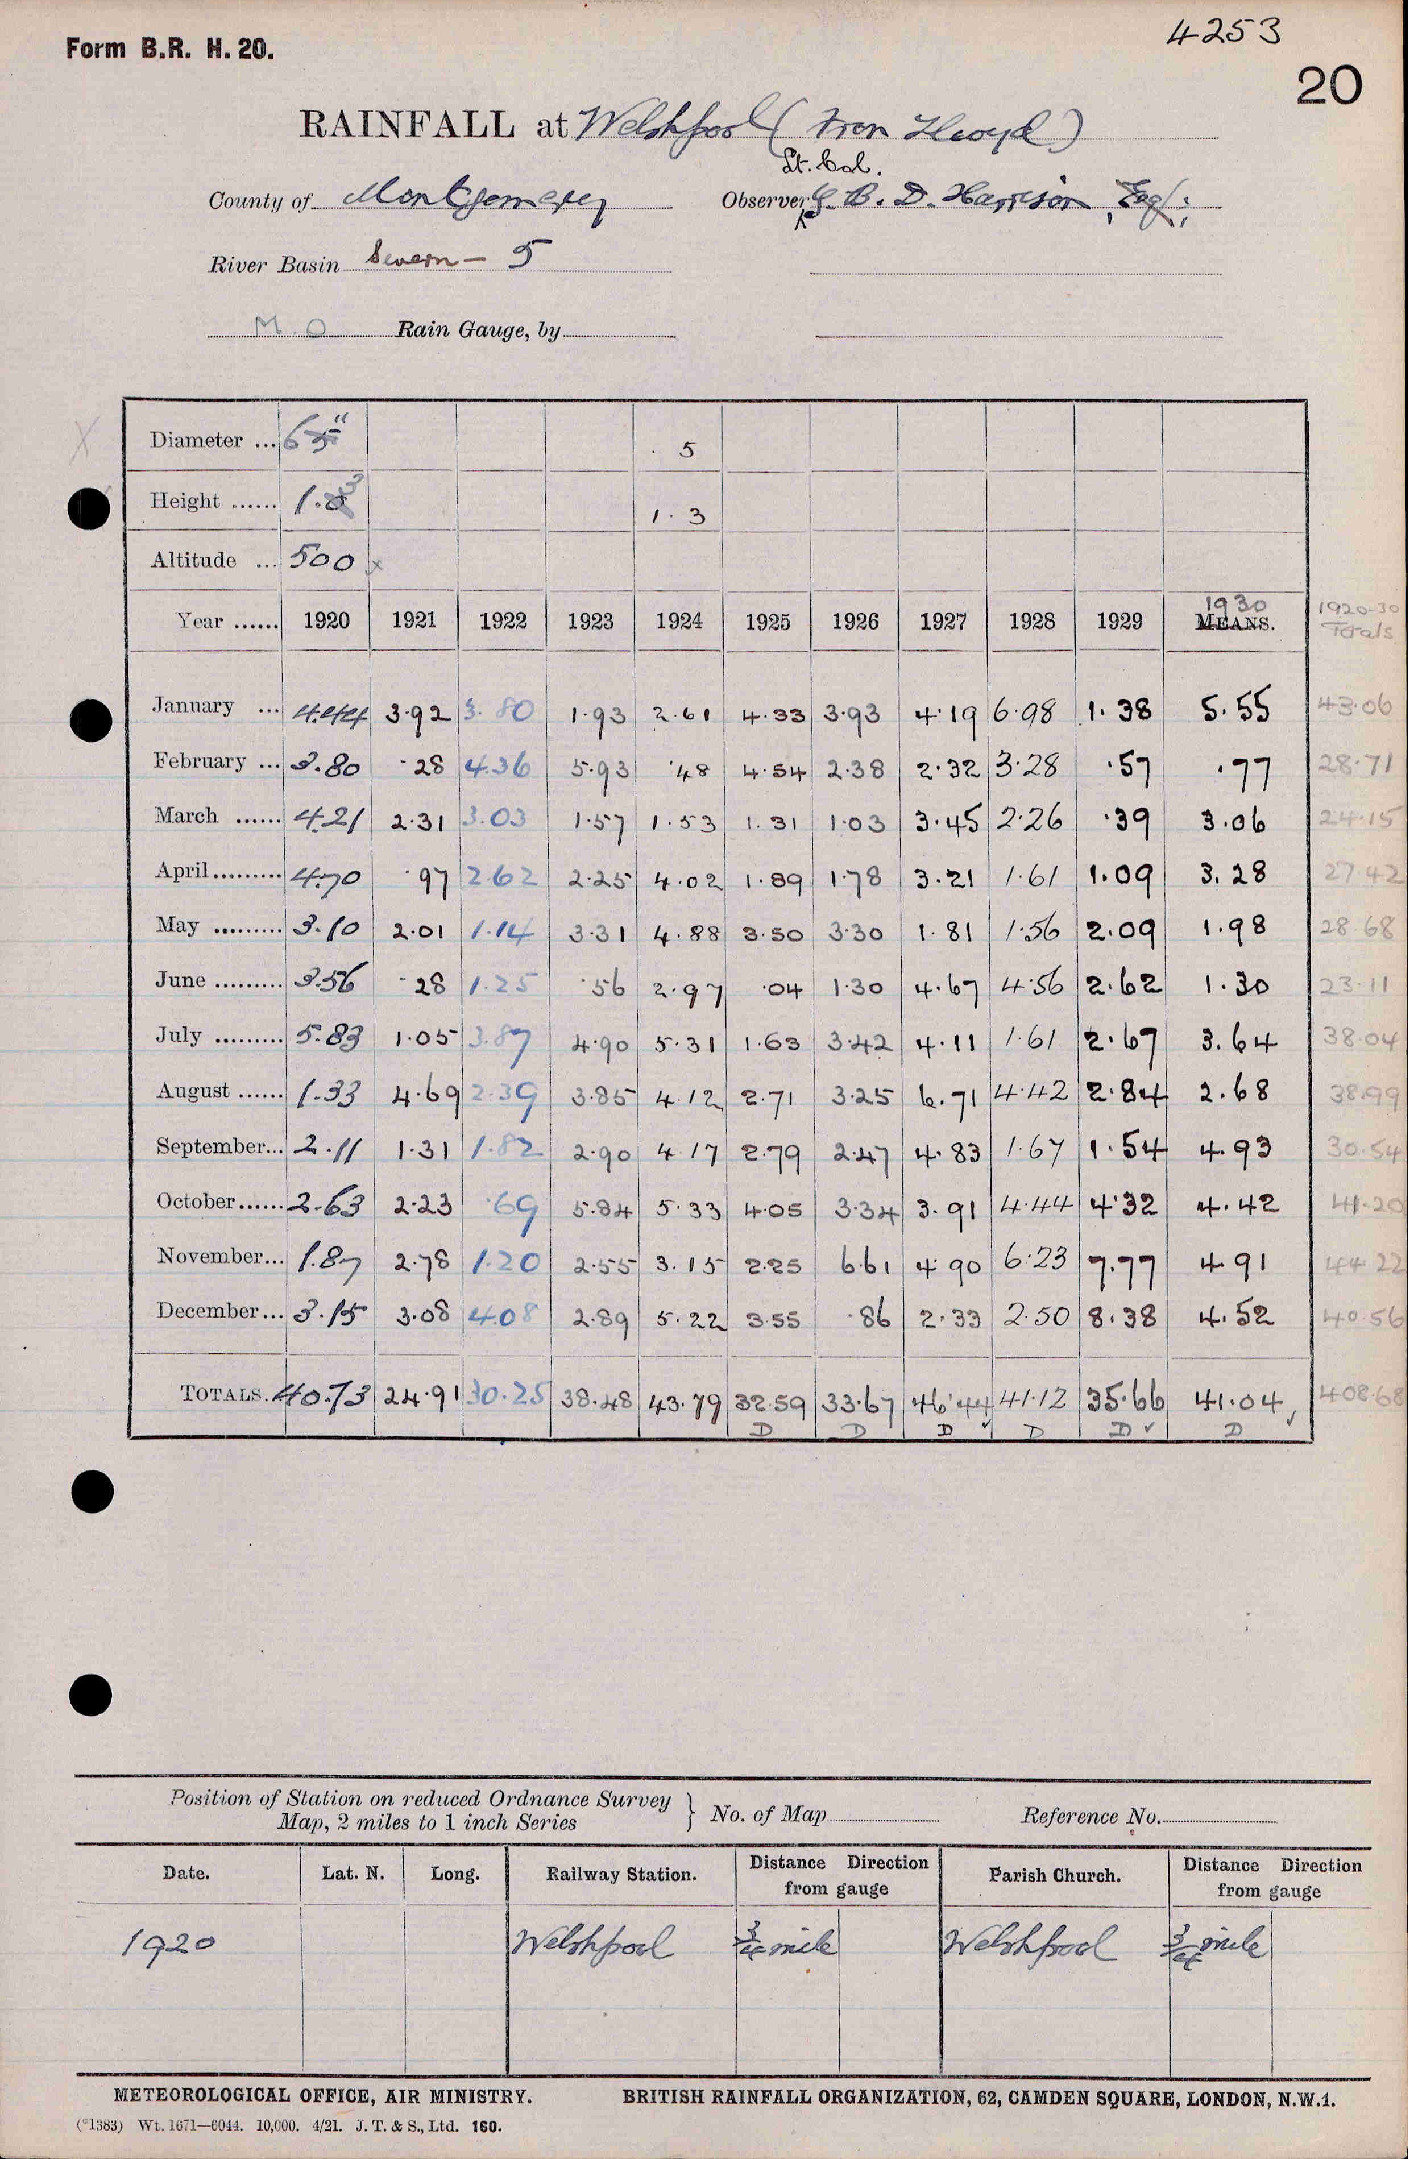 4253
Form B.R. H. 20.
20
RAINFALL at Welshpool (Fron Llwyd)
Lt. Col.
County of Montgomery Observer G. B. D. Harrison, Esq.;
River Basin Severn - 5
M.O Rain Gauge, by
Diameter ... 6 5" 5
Height ...... 1.0 3 1.3
Altitude ... 500 x
1930 1920-30
Year ...... 1920 1921 1922 1923 1924 1925 1926 1927 1928 1929 MEANS. Totals
January ... 4.44 3.92 3.80 1.93 2.61 4.33 3.93 4.19 6.98 1.38 5.55 43.06
February ... 3.80 .28 4.36 5.93 .48 4.54 2.38 2.32 3.28 .57 .77 28.71
March ...... 4.21 2.31 3.03 1.57 1.53 1.31 1.03 3.45 2.26 .39 3.06 24.15
April ......... 4.70 .97 2.62 2.25 4.02 1.89 1.78 3.21 1.61 1.09 3.28 27.42
May ......... 3.10 2.01 1.14 3.31 4.88 3.50 3.30 1.81 1.56 2.09 1.98 28.68
June ......... 3.56 .28 1.25 .56 2.97 .04 1.30 4.67 4.56 2.62 1.30 23.11
July ......... 5.83 1.05 3.87 4.90 5.31 1.63 3.42 4.11 1.61 2.67 3.64 38.04
August ...... 1.33 4.69 2.39 3.85 4.12 2.71 3.25 6.71 4.42 2.84 2.68 38.99
September... 2.11 1.31 1.82 2.90 4.17 2.79 2.47 4.83 1.67 1.54 4.93 30.54
October...... 2.63 2.23 .69 5.84 5.33 4.05 3.34 3.91 4.44 4.32 4.42 41.20
November... 1.87 2.78 1.20 2.55 3.15 2.25 6.61 4.90 6.23 7.77 4.91 44.22
December... 3.15 3.08 4.08 2.89 5.22 3.55 .86 2.33 2.50 8.38 4.52 40.56
TOTALS. 40.73 24.91 30.25 38.48 43.79 32.59 33.67 46.44 41.12 35.66 41.04 408.68
D D D D D D
Position of Station on reduced Ordnance Survey
Map, 2 miles to 1 inch Series } No. of Map Reference No.
Date. Lat. N. Long. Railway Station. Distance Direction from gauge Parish Church. Distance Direction from gauge
1920 Welshpool 3/4 mile Welshpool 3/4 mile
METEOROLOGICAL OFFICE, AIR MINISTRY. BRITISH RAINFALL ORGANIZATION, 62, CAMDEN SQUARE, LONDON, N.W.1.
(*1383) Wt. 1671—6044. 10,000. 4/21. J. T. & S., Ltd. 160.